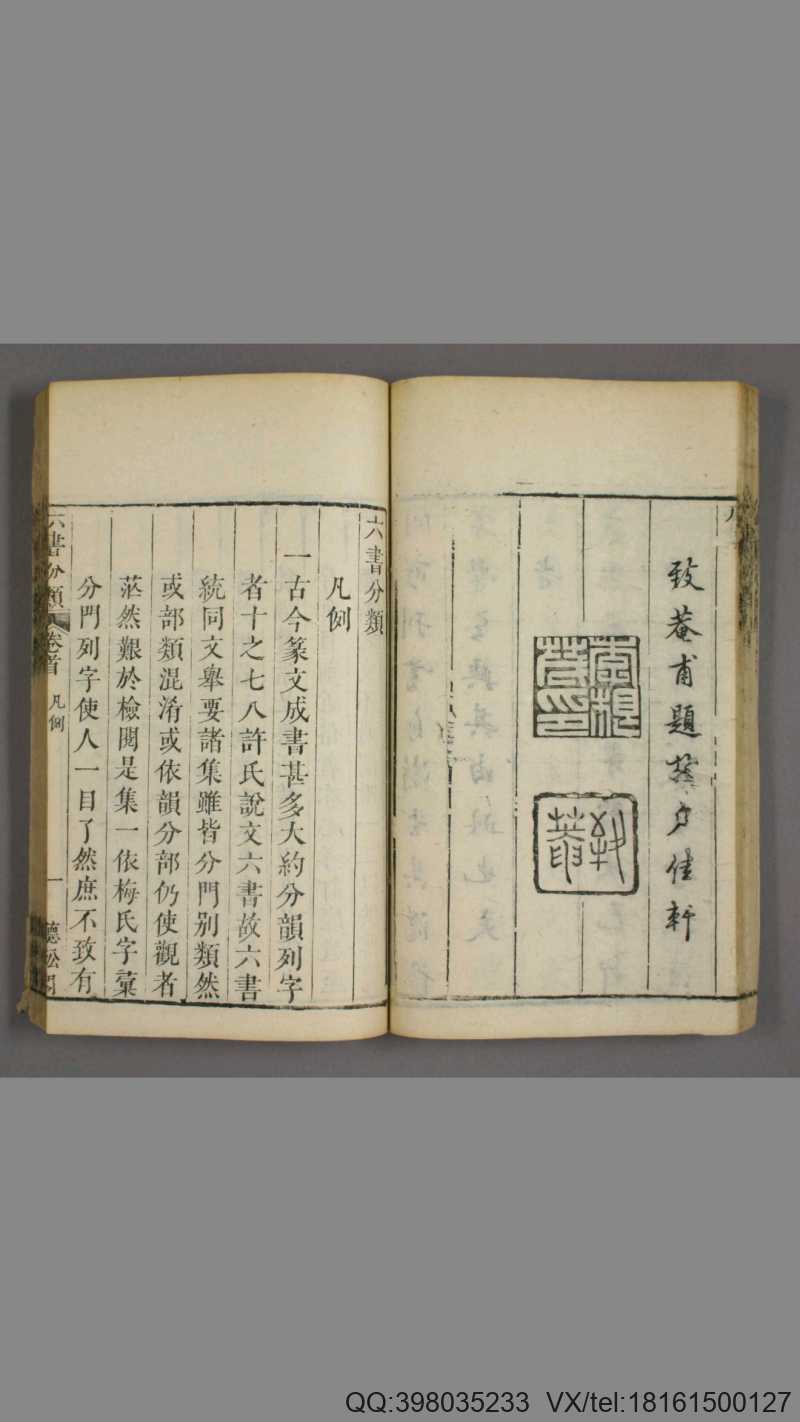 致菴甫題於
佳軒
六書分類
凡例
一古今篆文成書甚多大約分韻列字
者十之七八許氏說文六書故六書
統同文舉要諸集雖皆分門別類然
或部類混淆或依韻分部仍使觀者
茫然艱於檢閱是集一依梅氏字彙
分門列字使人一目了然庶不致有
六書分類 卷首 凡例 一 聽松閣
QQ:398035233 VX/tel:18161500127